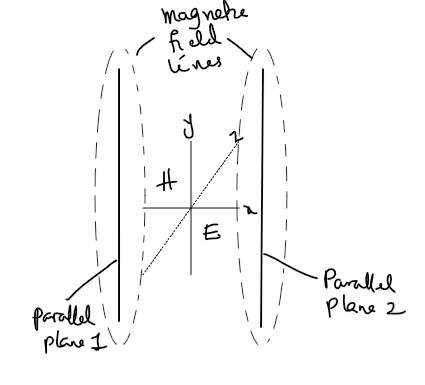 magnetic
field
lines
y
z
H
x
E
Parallel
plane 1
Parallel
plane 2